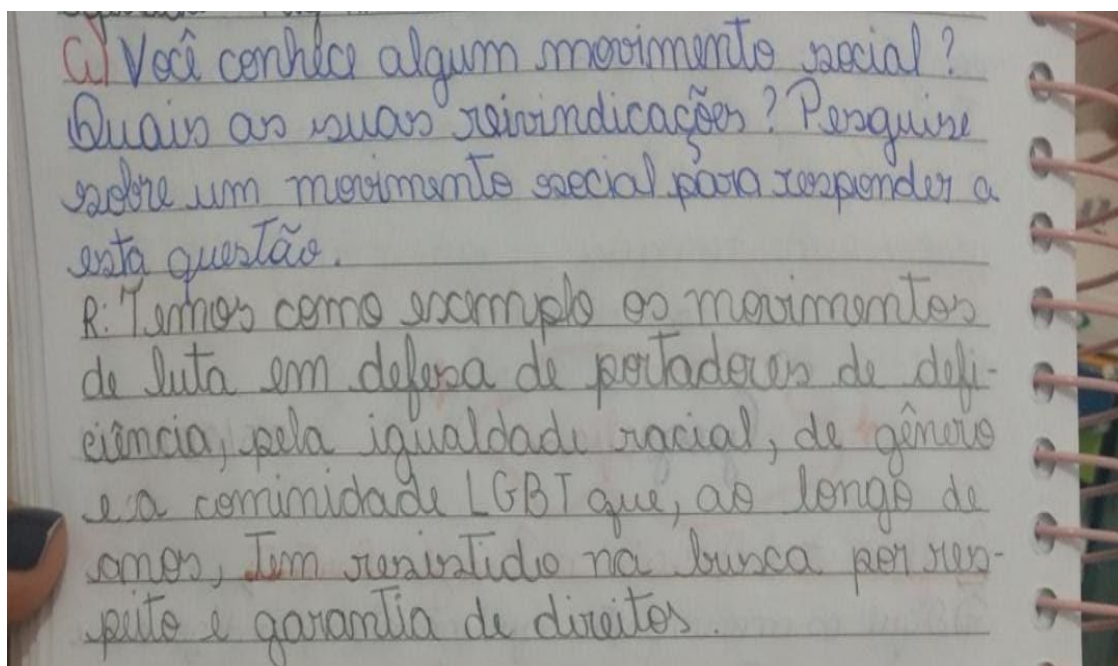 C) Você conhece algum movimento social?
Quais as suas reivindicações? Pesquise
sobre um movimento social para responder a
esta questão.
R: Temos como exemplo os movimentos
de luta em defesa de portadores de defi-
ciência, pela igualdade racial, de gênero
e a comimidade LGBT que, ao longo de
anos, Tem resistido na busca por res-
peito e garantia de direitos.